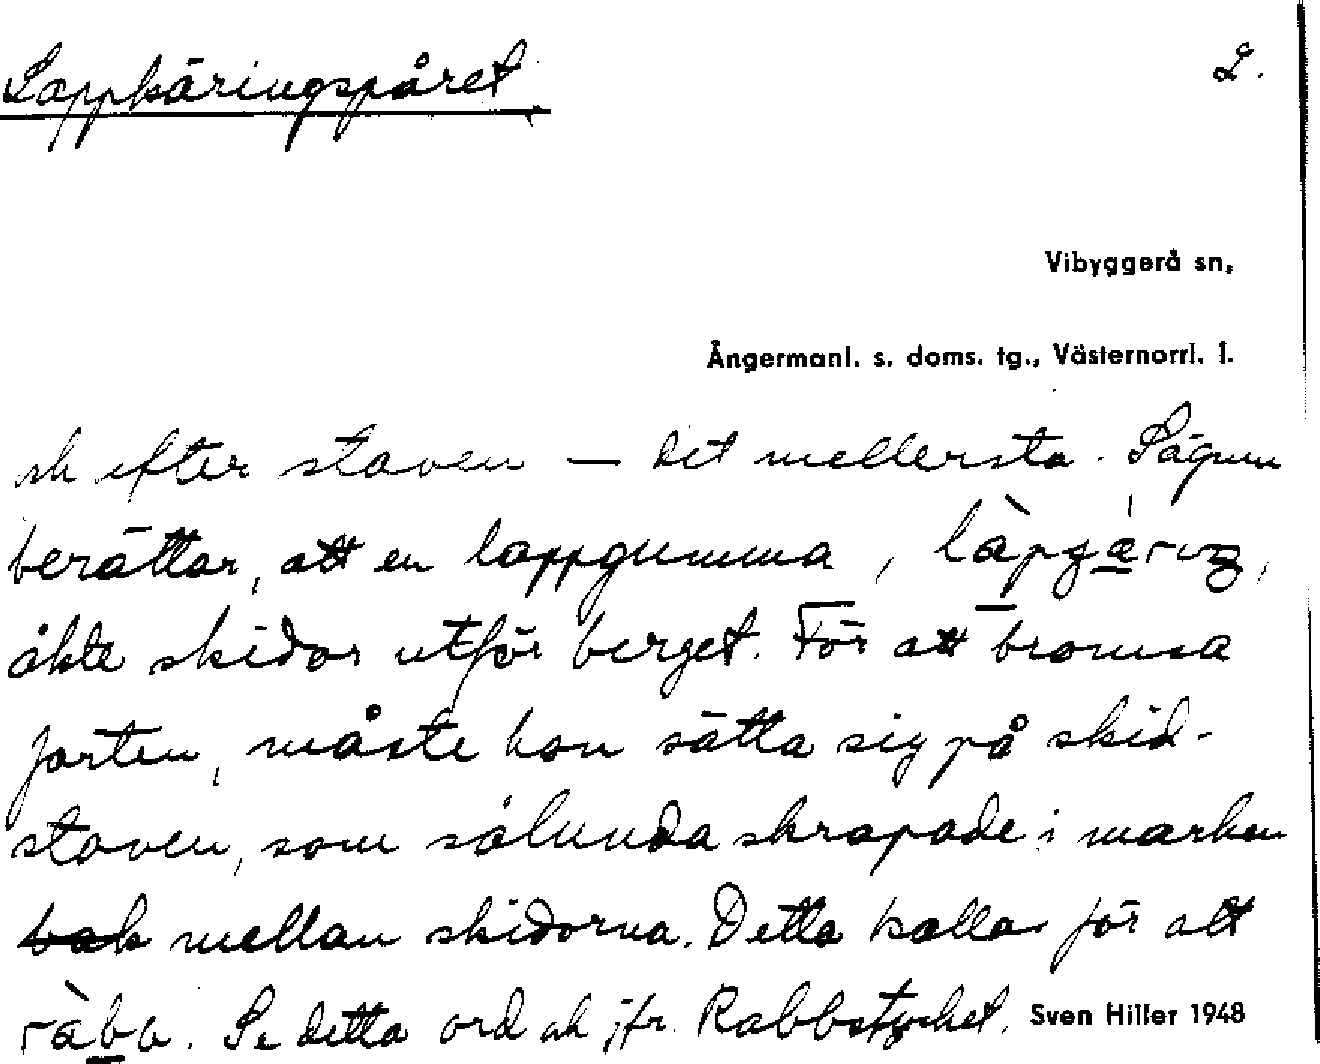 Lappkäringspåret 2.
Vibyggerå sn,
Ångermanl. s. doms. tg., Västernorrl. l.
ok efter staven — det mellersta. Sägnen
berättar, att en lappgumma,
åkte skidor utför berget. För att bromsa
farten, måste hon sätta sig på skid-
staven, som sålunda skrapade i marken
bak mellan skidorna. Detta kallas för att
ràba. Se detta ord ok jfr. Rabbstycket. Sven Hiller 1948